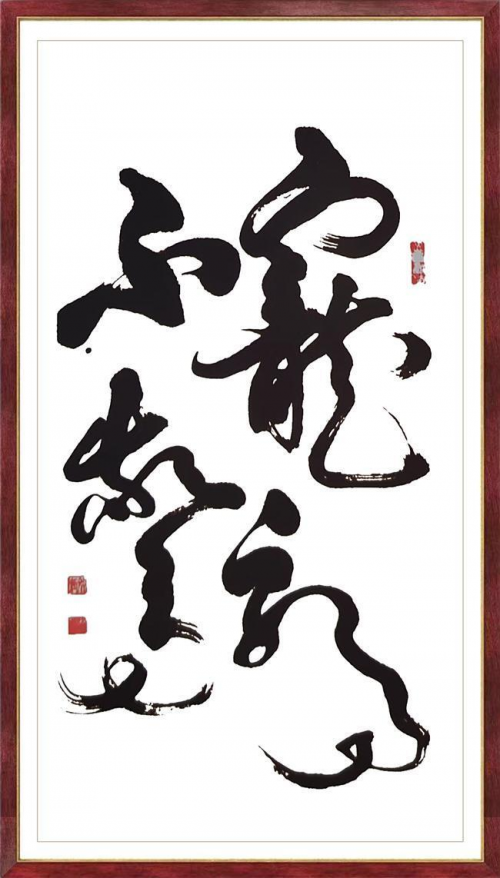 寵辱
不驚